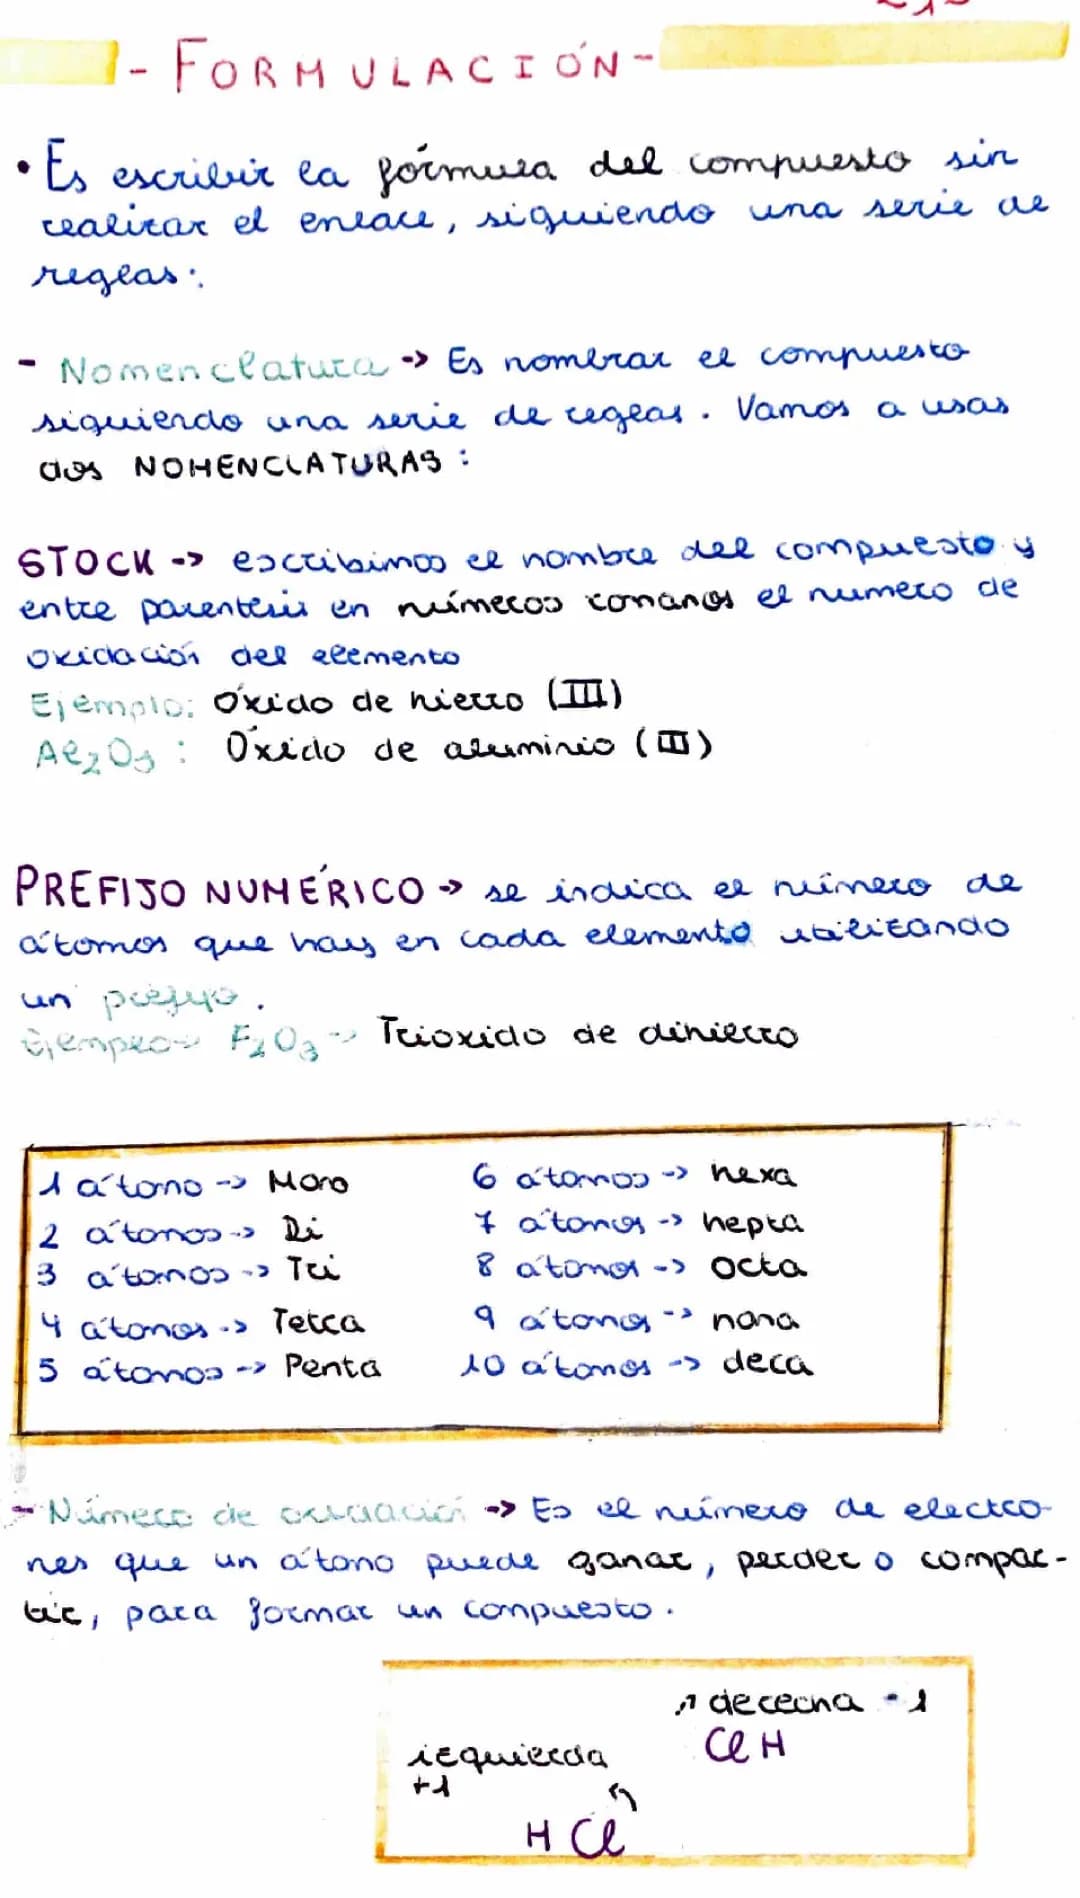 - FORMULACIÓN -
• Es escribir la fórmula del compuesto sin
realizar el enlace, siguiendo una serie de
reglas:
- Nomenclatura -> Es nombrar el compuesto
siguiendo una serie de reglas. Vamos a usas
dos NOMENCLATURAS :
STOCK -> escribimos el nombre del compuesto y
entre parentesis en números romanos el numero de
oxidación del elemento
Ejemplo: Óxido de hierro (III)
Al2O3 : Óxido de aluminio (III)
PREFIJO NUMÉRICO -> se indica el número de
átomos que hay en cada elemento utilizando
un prefijo.
Ejemplo-> F2O3 -> Trioxido de dihierro
1 átomo -> Mono
2 átomos -> Di
3 átomos -> Tri
4 átomos -> Tetra
5 átomos -> Penta
6 átomos -> hexa
7 átomos -> hepta
8 átomos -> octa
9 átomos -> nona
10 átomos -> deca
- Número de oxidación -> Es el número de electro-
nes que un átomo puede ganar, perder o compar-
tir, para formar un compuesto.
↗ derecha - 1
Cl H
izquierda
+1
H Cl